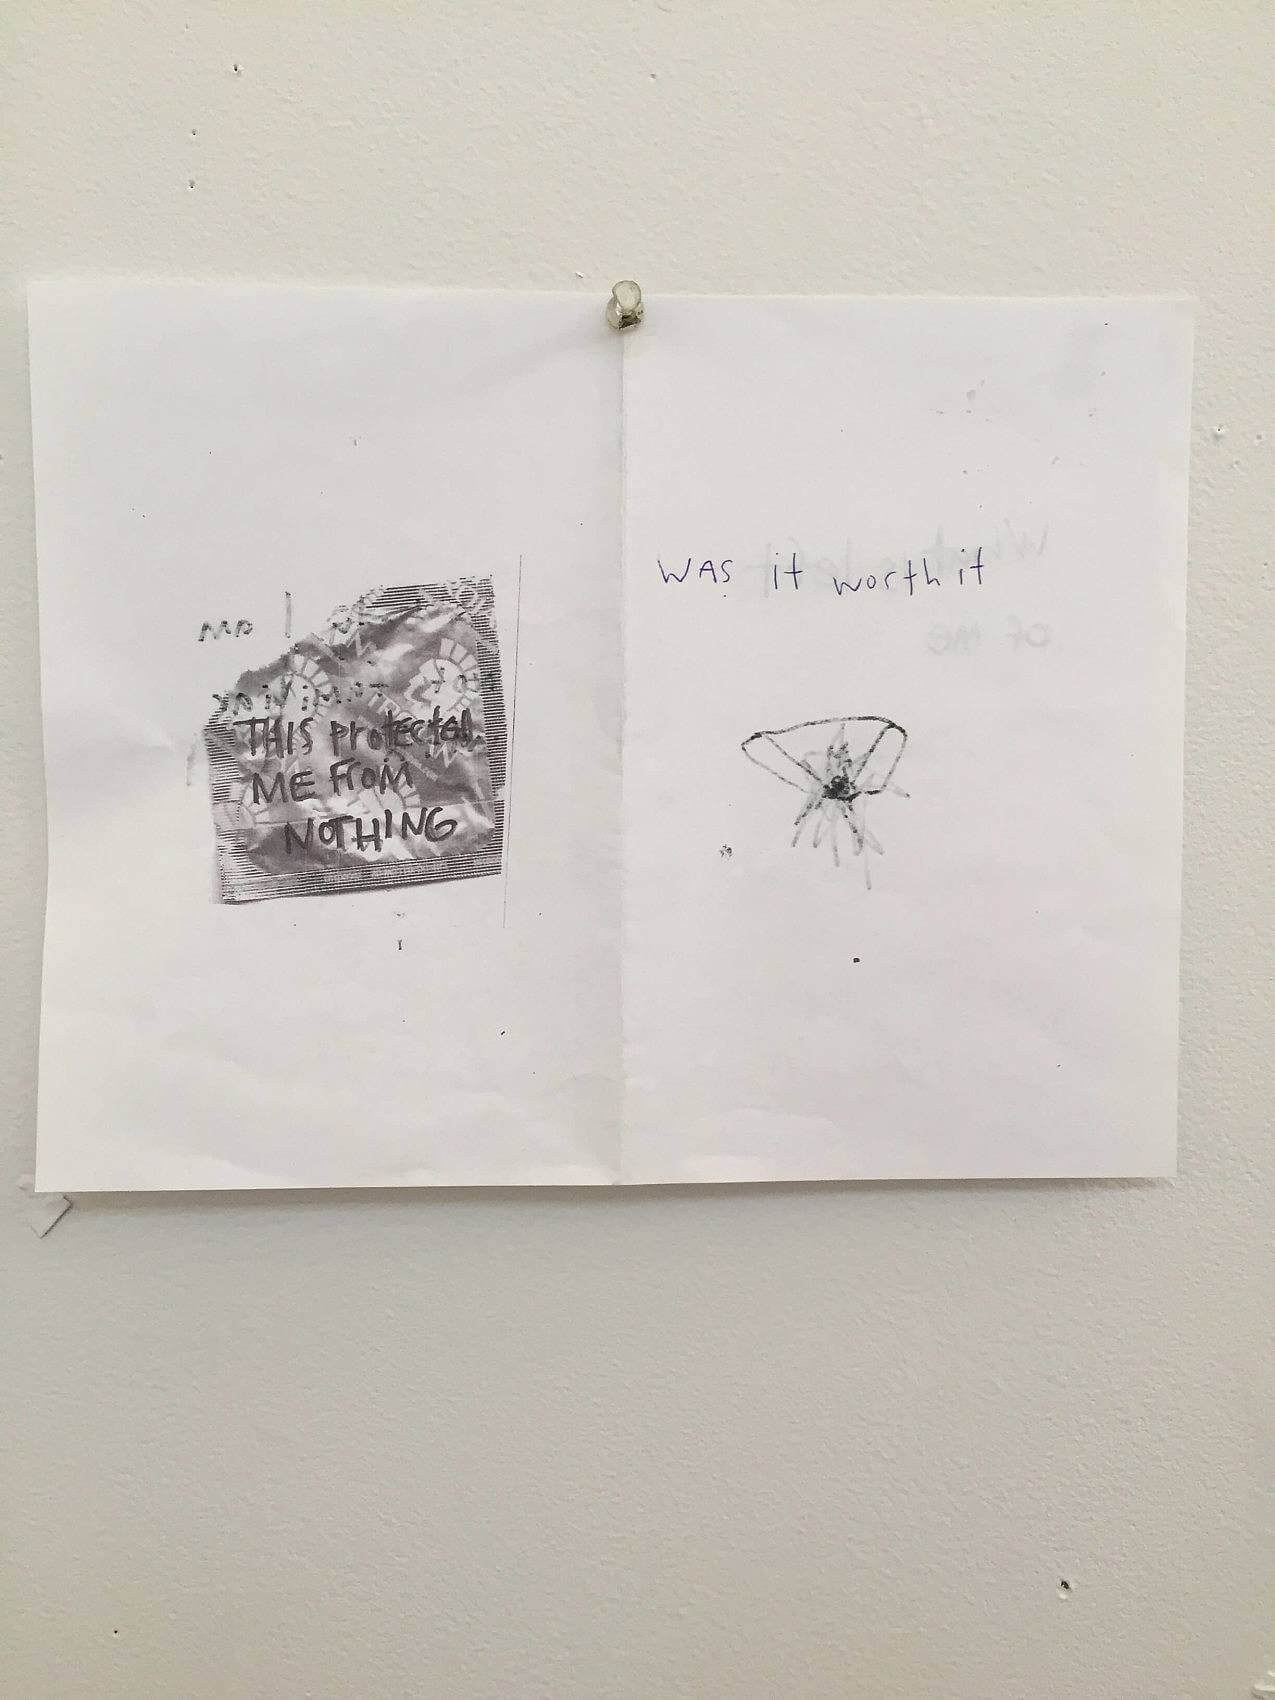 THIS protected
ME FROM
NOTHING
WAS it worth it
of me